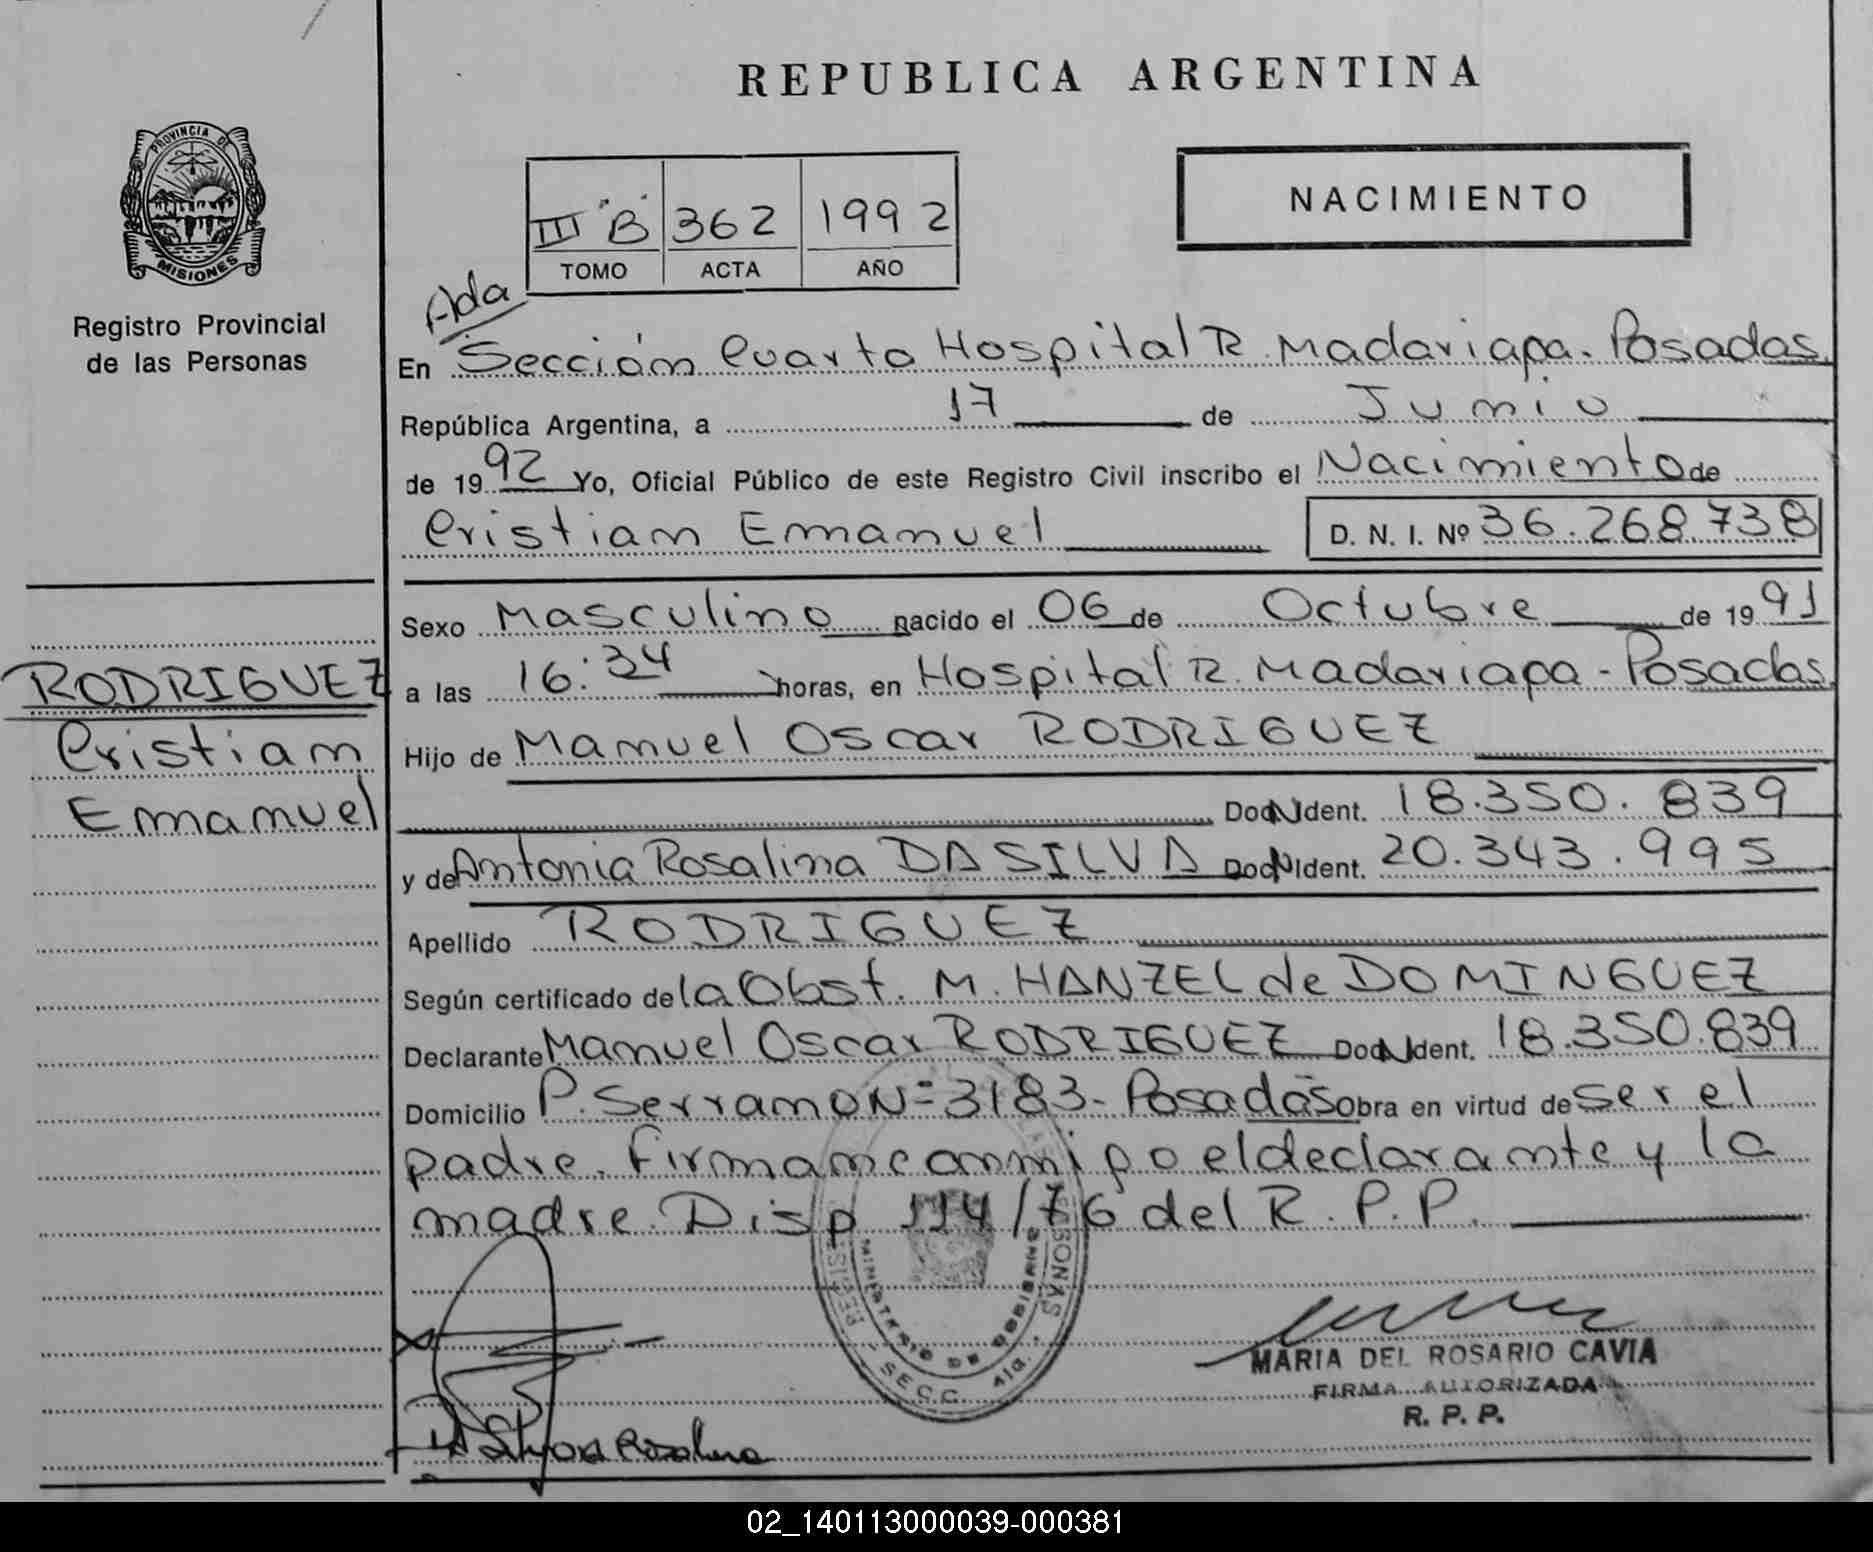 REPUBLICA ARGENTINA
PROVINCIA DE
MISIONES
Registro Provincial
de las Personas
III "B" 362 1992
TOMO ACTA AÑO
NACIMIENTO
Ada
En Sección Cuarta Hospital R. Madariaga. Posadas
República Argentina, a 17 de Junio
de 1992 Yo, Oficial Público de este Registro Civil inscribo el Nacimiento de
Cristian Emanuel D. N. I. Nº 36.268.738
Sexo Masculino nacido el 06 de Octubre de 1991
a las 16:34 horas, en Hospital R. Madariaga - Posadas
Hijo de Manuel Oscar RODRIGUEZ
Doc. N. Ident. 18.350.839
y de Antonia Rosalina DA SILVA Doc. N. Ident. 20.343.995
Apellido RODRIGUEZ
Según certificado de la Obst. M. HANZEL de DOMINGUEZ
Declarante Manuel Oscar RODRIGUEZ Doc. N. Ident. 18.350.839
Domicilio P. Serrano Nº 3183 - Posadas Obra en virtud de ser el
padre. Firman conmigo el declarante y la
madre. Disp 114/76 del R. P. P.
RODRIGUEZ
Cristian
Emanuel
SECC. 4ta.
MINISTERIO DE GOBIERNO
MARIA DEL ROSARIO CAVIA
FIRMA AUTORIZADA
R. P. P.
02_140113000039-000381